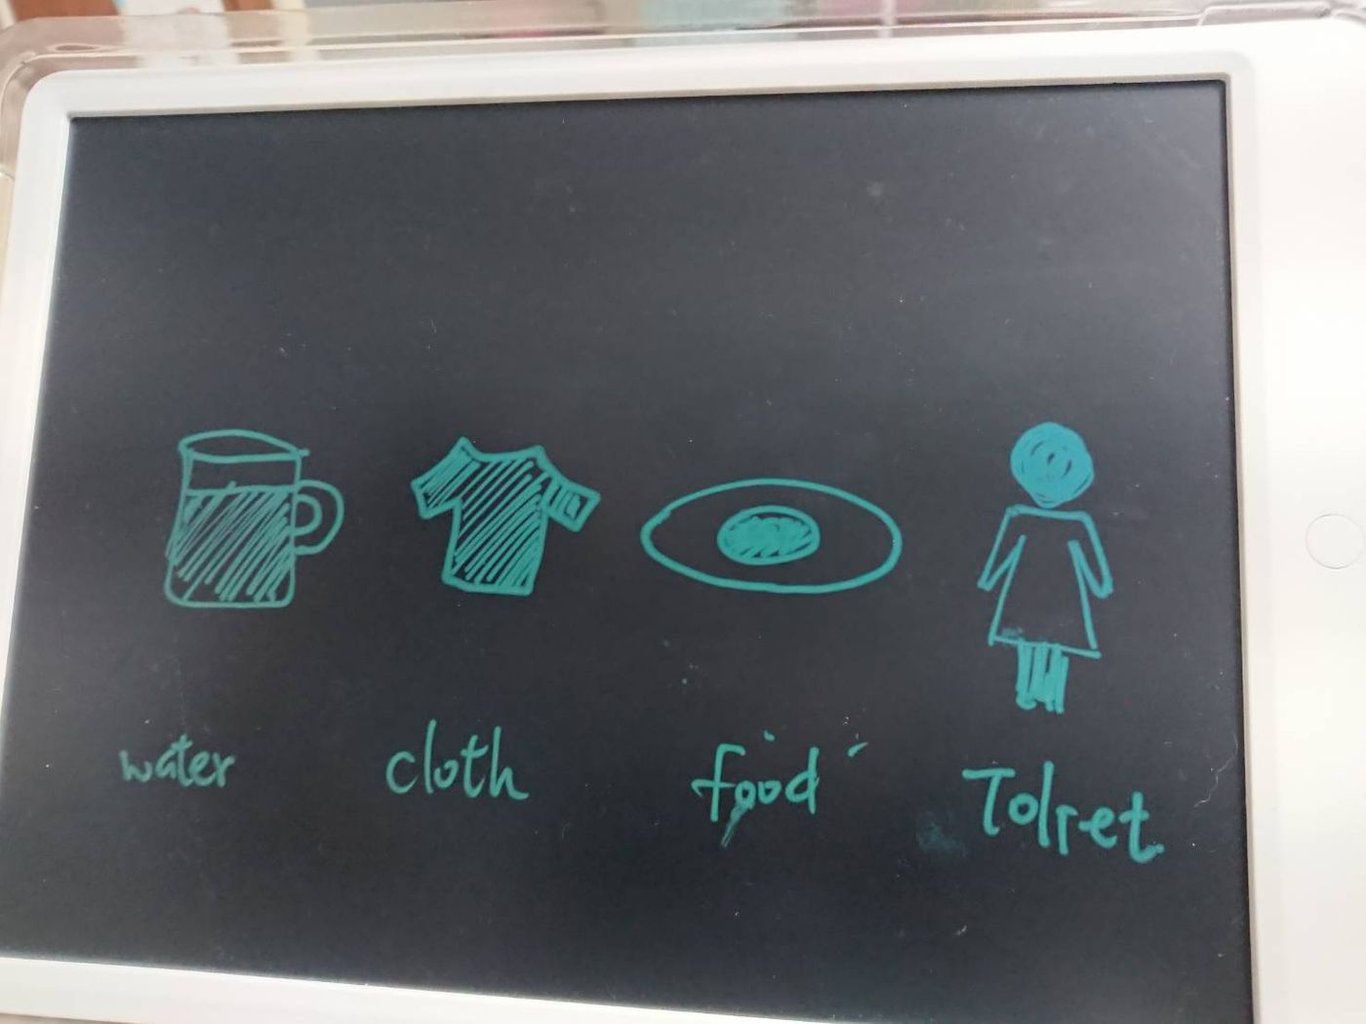 water cloth food Tolret